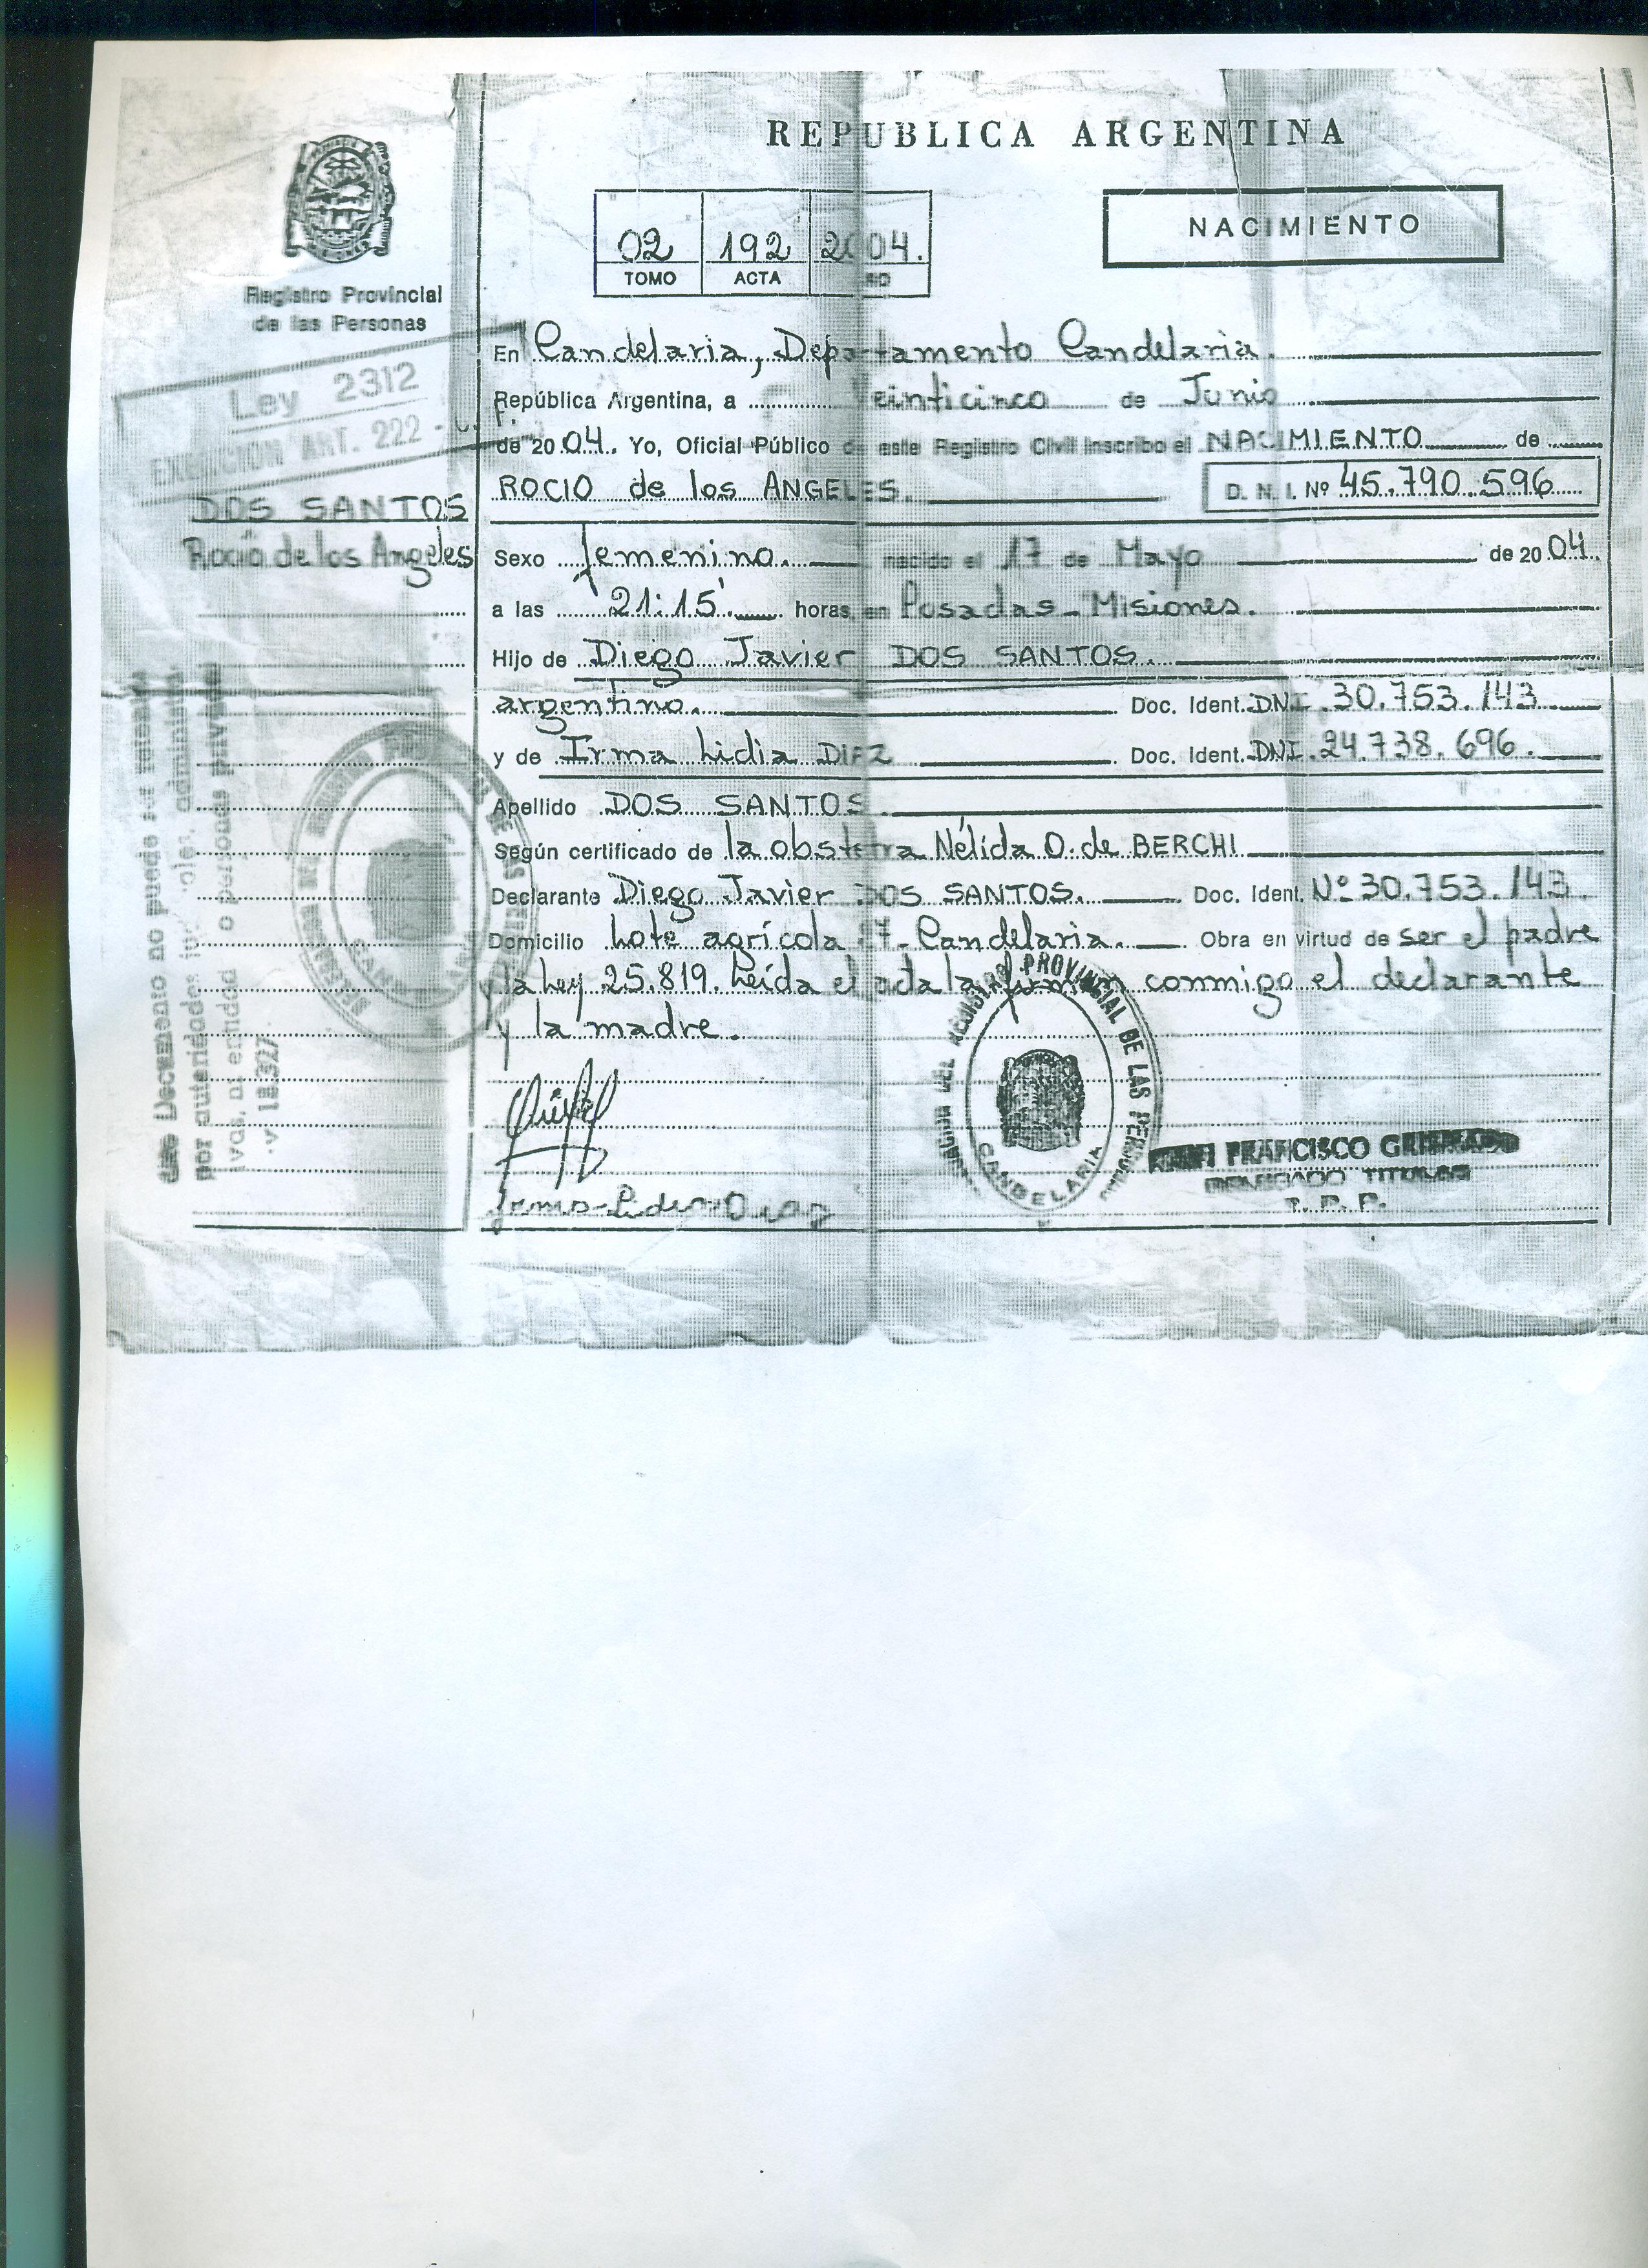 REPUBLICA ARGENTINA
NACIMIENTO
02 192 2004.
TOMO ACTA
Registro Provincial
de las Personas
Ley 2312
ART. 222
DOS SANTOS
Rocío de los Angeles
En Candelaria, Departamento Candelaria.
República Argentina, a Veinticinco de Junio
de 2004. Yo, Oficial Público de este Registro Civil inscribo el NACIMIENTO de
ROCIO de los ANGELES. D. N. I. Nº 45.790.596
Sexo femenino. nacido el 17 de Mayo de 2004.
a las 21:15 horas, en Posadas - Misiones.
Hijo de Diego Javier DOS SANTOS.
argentino. Doc. Ident. DNI. 30.753.143
y de Irma Lidia Doc. Ident. DNI. 24.738.696.
Apellido DOS SANTOS
Según certificado de la obstetra Nélida O. de BERCHI
Declarante Diego Javier DOS SANTOS. Doc. Ident. Nº 30.753.143.
Domicilio Lote agrícola 27 - Candelaria. Obra en virtud de ser el padre
y la Ley 25.819. Leída el acta la conmigo el declarante
y la madre.
Irma Lidia Diaz
PROVINCIAL DE LAS
CANDELARIA
FRANCISCO
TITULAR
Documento no puede ser
por autoridades administra
ivas, ni entidad o personas privadas
18.327